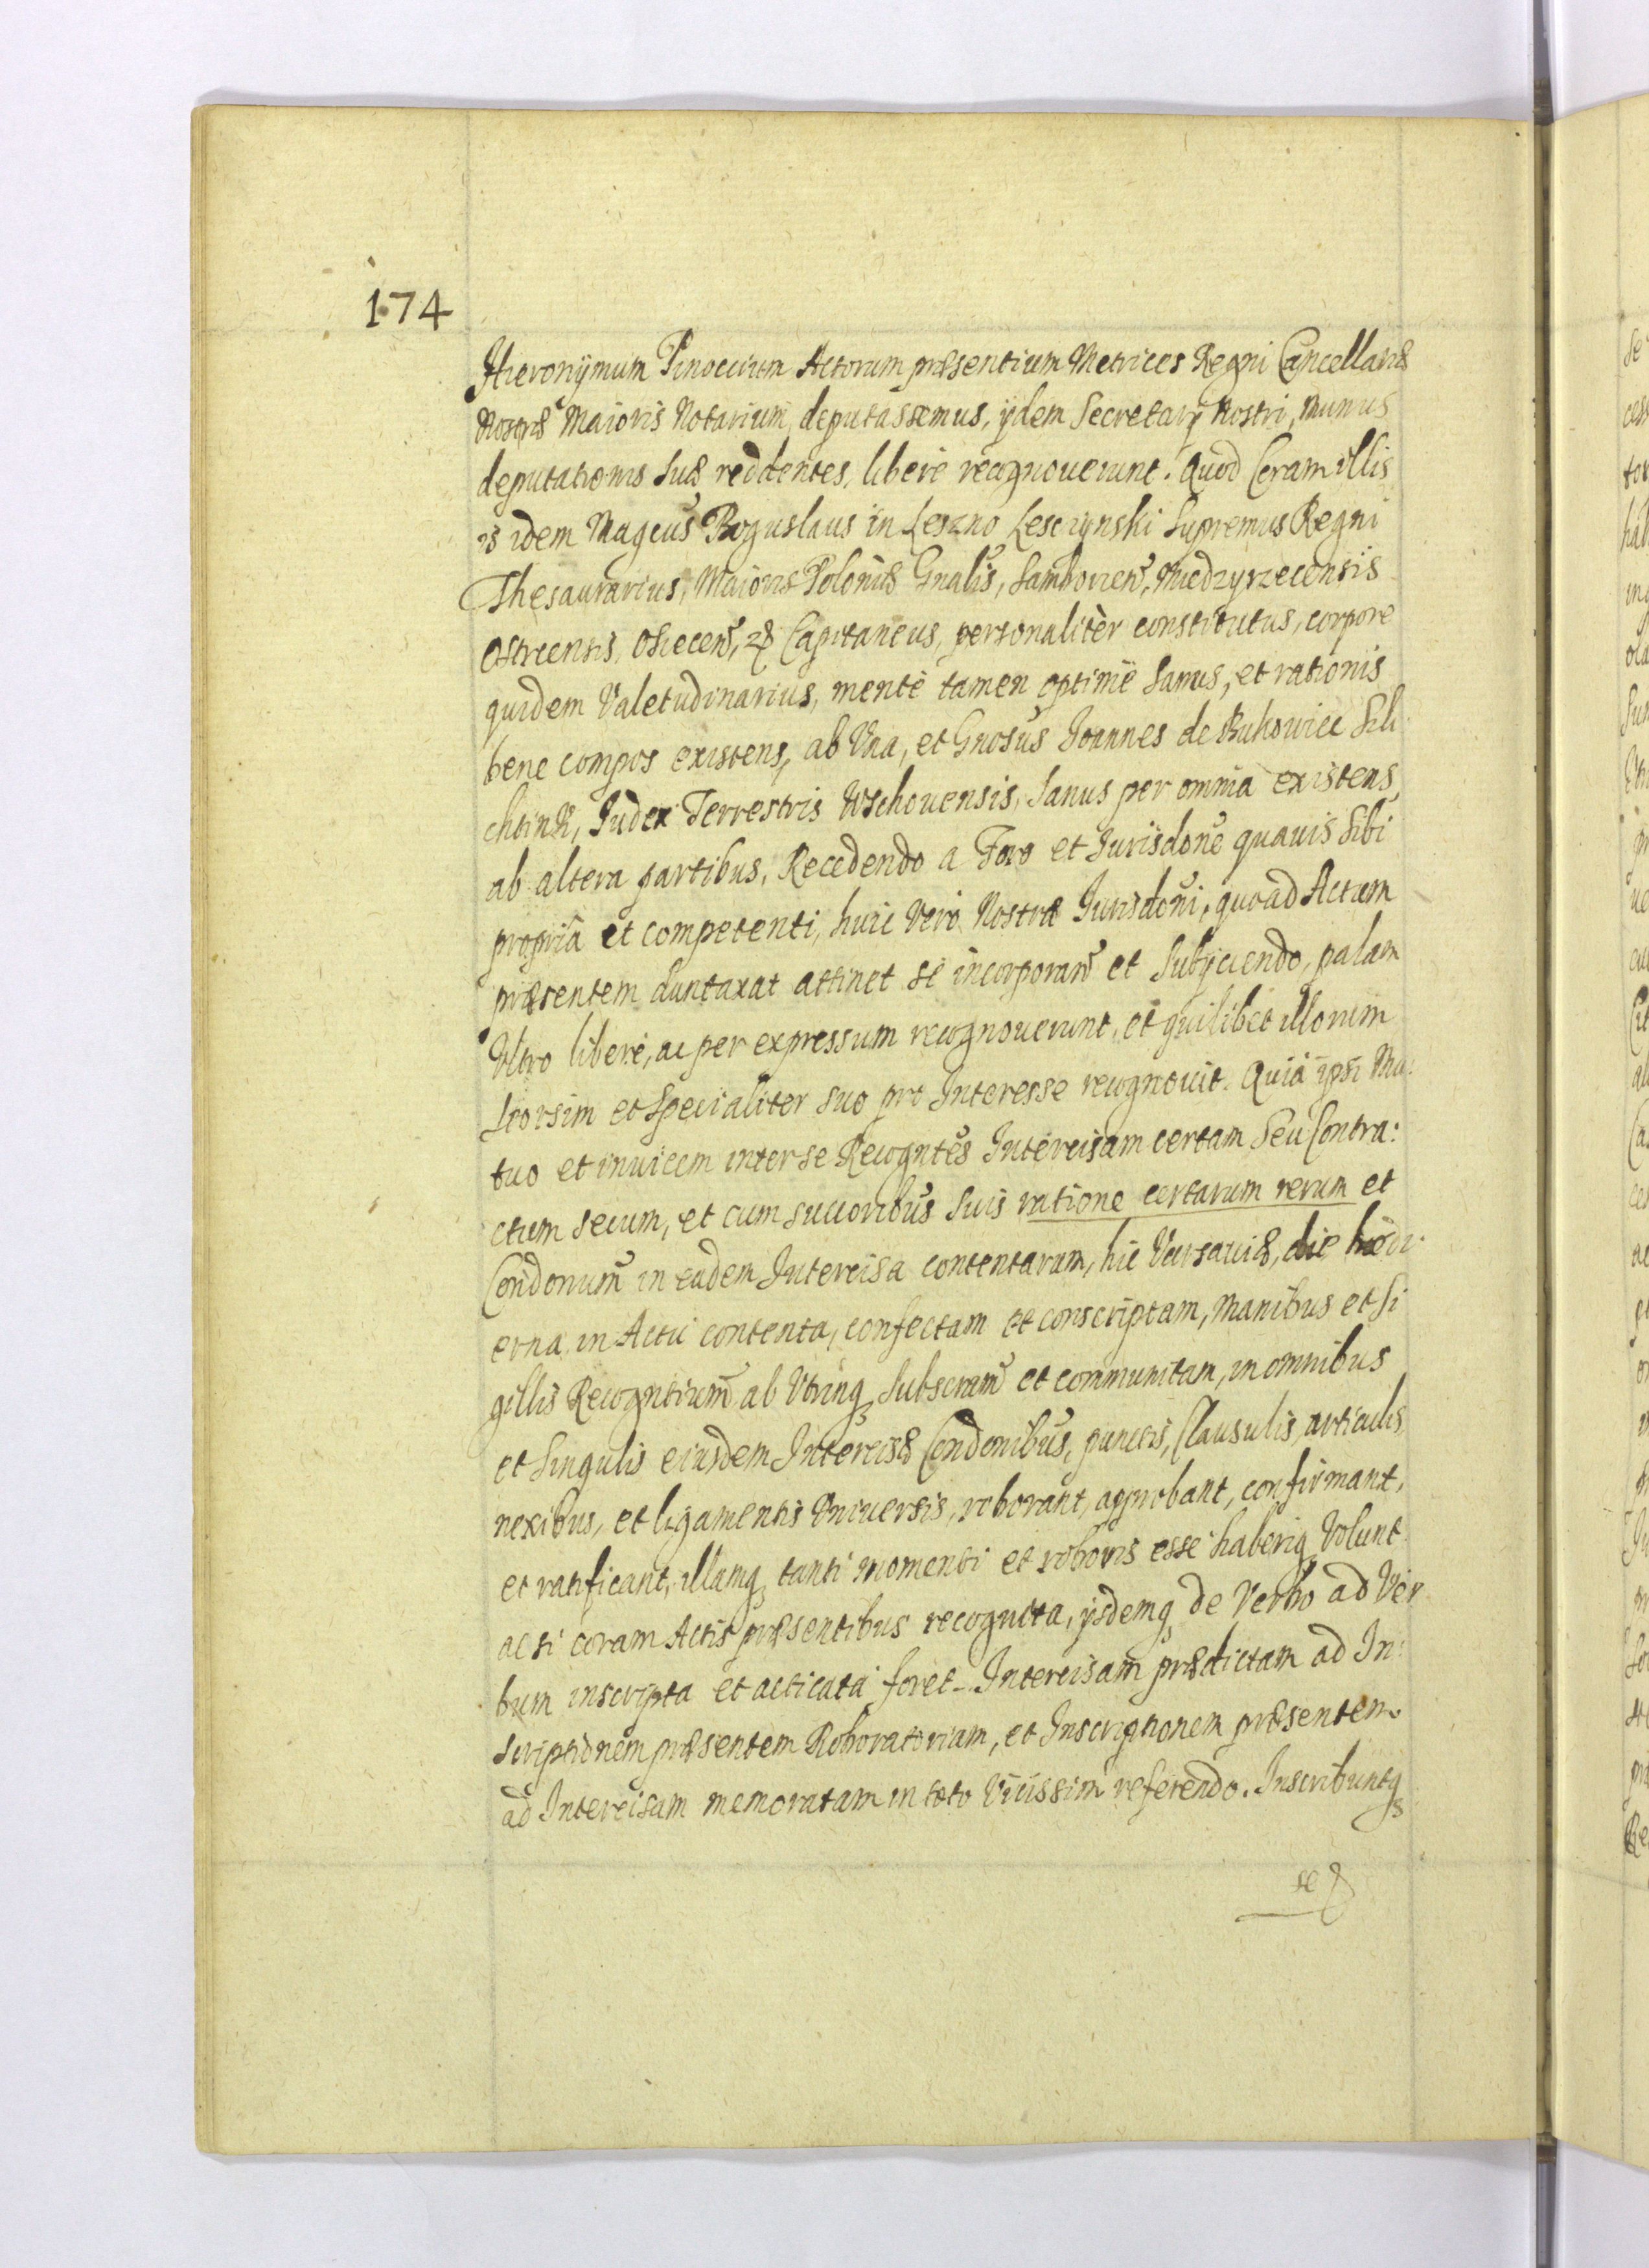 174
Hieronymum Pinoccium Actorum præsentium Metrices Regni Cancellariæ
Nostræ Maioris Notarium, deputassemus, ijdem Secretarij Nostri, Munus
deputationis suæ reddentes, liberè recognoverunt. Quod Coram illis
is idem Magcus Boguslaus in Leszno Lesczynski Supremus Regni
Thesaurarius, Maioris Poloniæ Gnalis, Samborien, Miedzyrzecensis
Ostrcensis, Osiecen, &c Capitaneus, personalitèr constitutus, corpore
quidem Valetudinarius, mente tamen optimè sanus, et rationis
bene compos existens, ab Vna, et Gnosus Joannes de Bukowiec Sli
chtink, Judex Terrestris Wschouensis, Sanus per omnia existens,
ab altera partibus, Recedendo a Foro et Jurisdone quavis sibi
propria et competenti, huic Verò Nostræ Jurisdoni, quoad Actum
præsentem duntaxat attinet se incorporan et subijciendo, palam
Vltro liberè, ac per expressum recognouerunt, et quilibet illorum
seorsim et specialiter suo pro Interesse recognouit. Quia ipsi Mu:
tuo et inuicem inter se Recogntes Intercisam certam seu Contra:
ctum secum, et cum succoribus suis ratione certarum rerum et
Condonum in eadem Intercisa contentarum, hic Varsauiæ, die hodi:
erna in Actu contenta, confectam et conscriptam, Manibus et Si
gillis Recogntium ab Vtrinq subscram et communitam, in omnibus
et singulis eiusdem Intercisæ Condonibus, punctis, Clausulis, articulis,
nexibus, et ligamentis Vniuersis, roborant, approbant, confirmant,
et ratificant, illamq tanti momenti et roboris esse haberiq Volunt
ac si coram Actis præsentibus recognita, ijsdemq de Verbo ad Ver
bum inscripta et acticata foret. Intercisam prædictam ad In:
scriptionem præsentem Roboratoriam, et Inscriptionem præsentem
ad Intercisam memoratam in toto Vicissim referendo. Inscribuntq
se